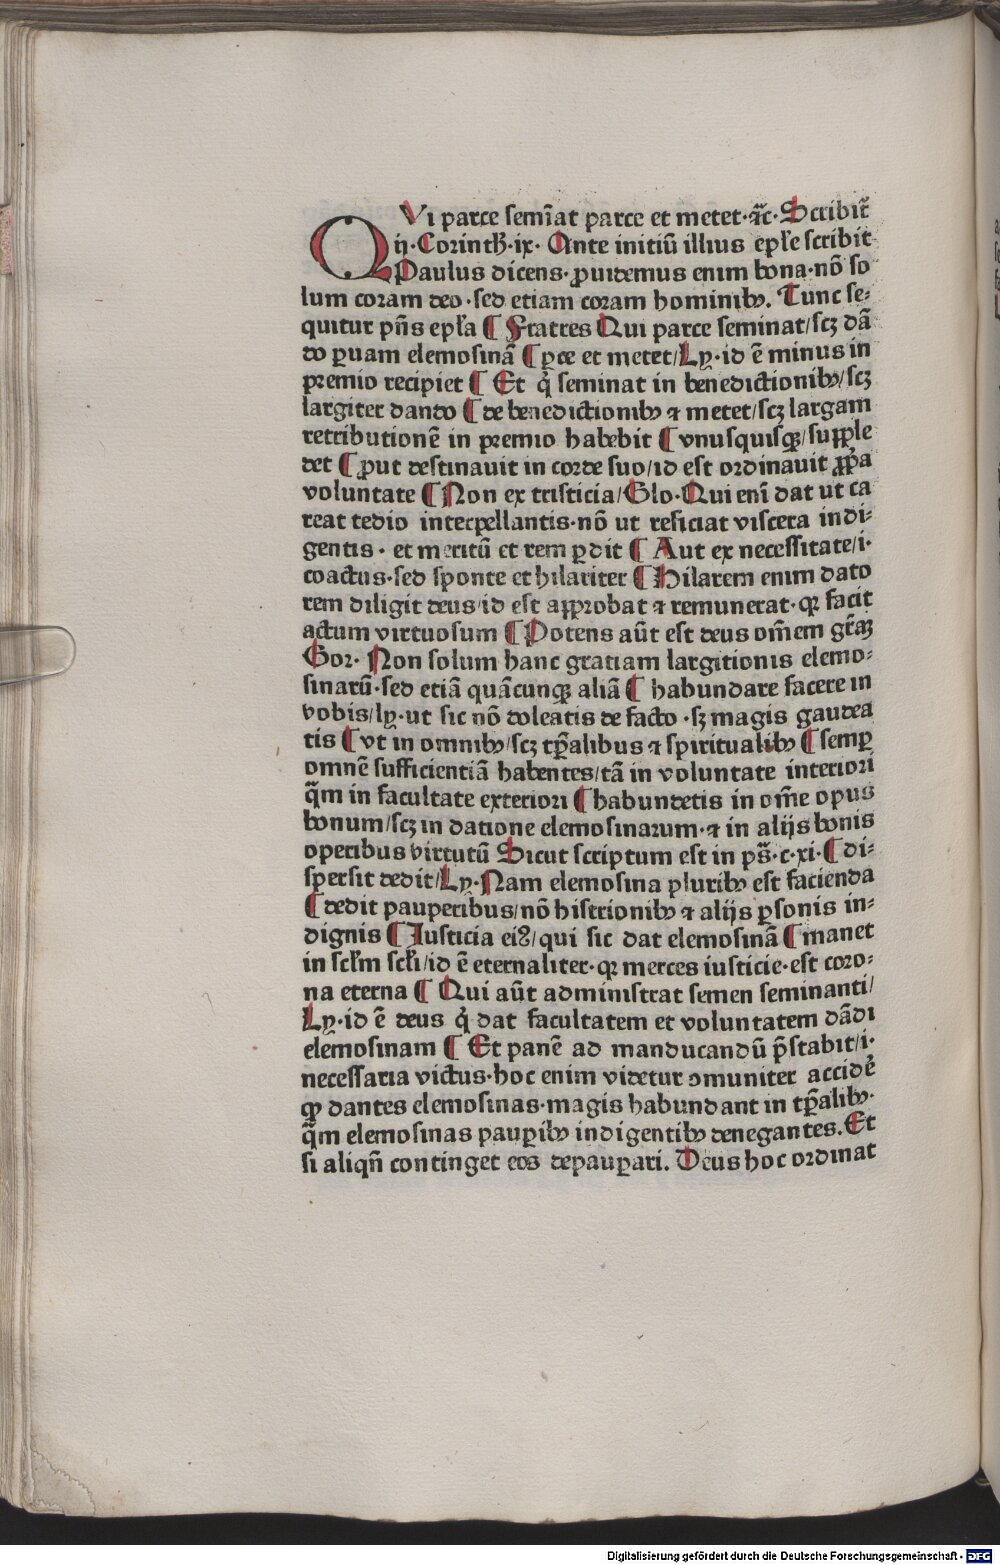 QVi parce semīat parce et metet·⁊c̄·Scribit̄
ij·Corinth·ix· Ante initiū illius epl̄e scribit
Paulus dicens·ꝓuidemus enim bona·nō so
lum coram deo·sed etiam coram hominibꝰ. Tunc se⸗
quitur pn̄s epl̄a ¶ Fratres Qui parce seminat/scꝫ dā
do ꝑuam elemosinā ¶ ꝑce et metet/Ly·id ē minus in
premio recipiet ¶ Et qͥ seminat in benedictionibꝰ/scꝫ
largiter dando ¶ de benedictionibꝰ ⁊ metet/scꝫ largam
retributionē in premio habebit ¶ vnusquisqꝫ/supple
det ¶ ꝓut destinauit in corde suo/id est ordinauit ꝓpͥa
voluntate ¶ Non ex tristicia/Glo·Qui enī dat ut ca
reat tedio interpellantis·nō ut reficiat viscera indi⸗
gentis· et meritū et rem ꝑdit ¶ Aut ex necessitate/i·
coactus·sed sponte et hilariter ¶ Hilarem enim dato
rem diligit deus/id est approbat ⁊ remunerat·qꝛ facit
actum virtuosum ¶ Potens aūt est deus om̄em gr̄aꝫ
Gor· Non solum hanc gratiam largitionis elemo⸗
sinarū·sed etiā quācunqꝫ aliā ¶ habundare facere in
vobis/ly·ut sic nō doleatis de facto·sꝫ magis gaudea
tis ¶ vt in omnibꝰ/scꝫ tp̄alibus ⁊ spiritualibꝰ ¶ semꝑ
omnē sufficientiā habentes/tā in voluntate interiori
q̄m in facultate exteriori ¶ habundetis in om̄e opus
bonum/scꝫ in datione elemosinarum·⁊ in alijs bonis
operibus virtutū Sicut scriptum est in ps̄·c·xi·¶ di⸗
spersit dedit/Ly·Nam elemosina pluribꝰ est facienda
¶ dedit pauperibus/nō histrionibꝰ ⁊ alijs ꝑsonis in⸗
dignis ¶ Iusticia eiꝰ/qui sic dat elemosinā ¶ manet
in scl̄m scl̄i/id ē eternaliter·qꝛ merces iusticie·est coro⸗
na eterna ¶ Qui aūt administrat semen seminanti/
Ly·id ē deus qͥ dat facultatem et voluntatem dādi
elemosinam ¶ Et panē ad manducandū p̄stabit/i·
necessaria victus·hoc enim videtur ↄmuniter accidē
qꝫ dantes elemosinas·magis habundant in tp̄alibꝰ·
q̄m elemosinas pauꝑibꝰ indigentibꝰ denegantes. Et
si aliqn̄ continget eos depauꝑari. Deus hoc ordinat
Digitalisierung gefördert durch die Deutsche Forschungsgemeinschaft - DFG